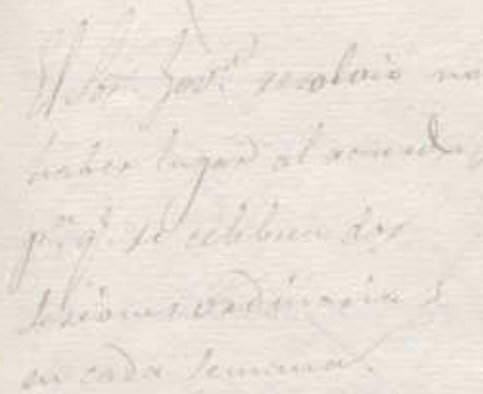 El Sor. Gov.r resolvió no
haber lugar al acuerdo,
p.a q.e se celebren dos
sesiones ordinarias
en cada semana.